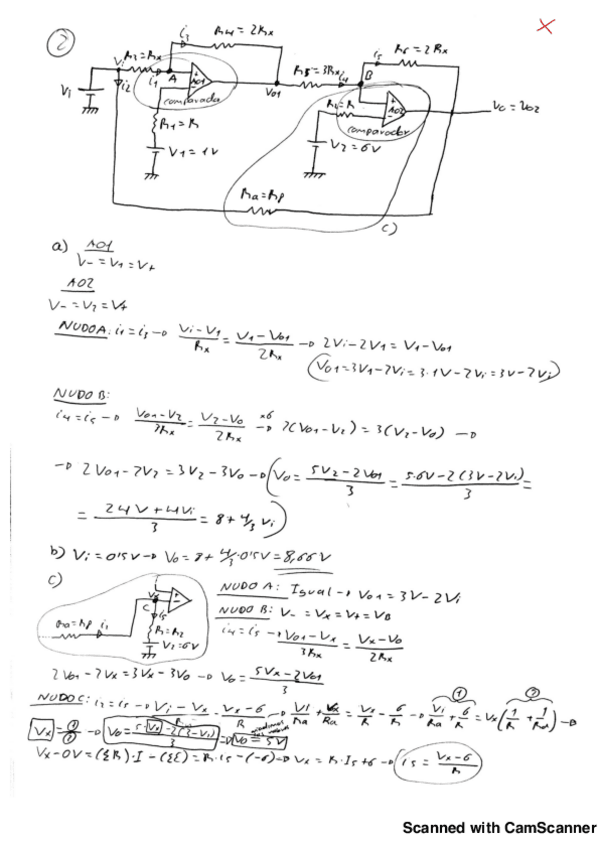 2
R4 = 2Rx
R2 = Rx
i3
R6 = 2Rx
i5
Vi
i1
A
AO1
i2
R5 = 3Rx
i4
B
Vo1
comparador
R1 = R
V1 = 1V
AO2
Vo = Vo2
comparador
V2 = 6V
Ra = Rp
c)
a) AO1
V- = V1 = V+
AO2
V- = V2 = V+
NUDO A: i1 = i3 → (Vi - V1)/Rx = (V1 - Vo1)/2Rx → 2Vi - 2V1 = V1 - Vo1
(Vo1 = 3V1 - 2Vi = 3·1V - 2Vi = 3V - 2Vi)
NUDO B:
i4 = i5 → (Vo1 - V2)/3Rx = (V2 - Vo)/2Rx ×6 → 2(Vo1 - V2) = 3(V2 - Vo) →
→ 2Vo1 - 2V2 = 3V2 - 3Vo → (Vo = (5V2 - 2Vo1)/3 = (5·6V - 2(3V - 2Vi))/3 =
= (24V + 4Vi)/3 = 8 + 4/3 Vi)
b) Vi = 0'5V → Vo = 8 + 4/3·0'5V = 8,66V
c)
Vx
C
i5
Ra = Rp
i2
V2 = 6V
NUDO A: Igual → Vo1 = 3V - 2Vi
NUDO B: V- = Vx = V+ = VB
i4 = i5 → (Vo1 - Vx)/3Rx = (Vx - Vo)/2Rx
2Vo1 - 2Vx = 3Vx - 3Vo → Vo = (5Vx - 2Vo1)/3
NUDO C: i2 = i5 → (Vi - Vx)/Ra = (Vx - 6)/R → Vi/Ra + 6/R = Vx(1/R + 1/Ra) →
Vx = 1/2 → Vo = 5V
Vx - 0V = (ΣR)·I - (ΣE) = R·i5 - (-6) → Vx = R·I5 + 6 → (i5 = (Vx - 6)/R)
Scanned with CamScanner